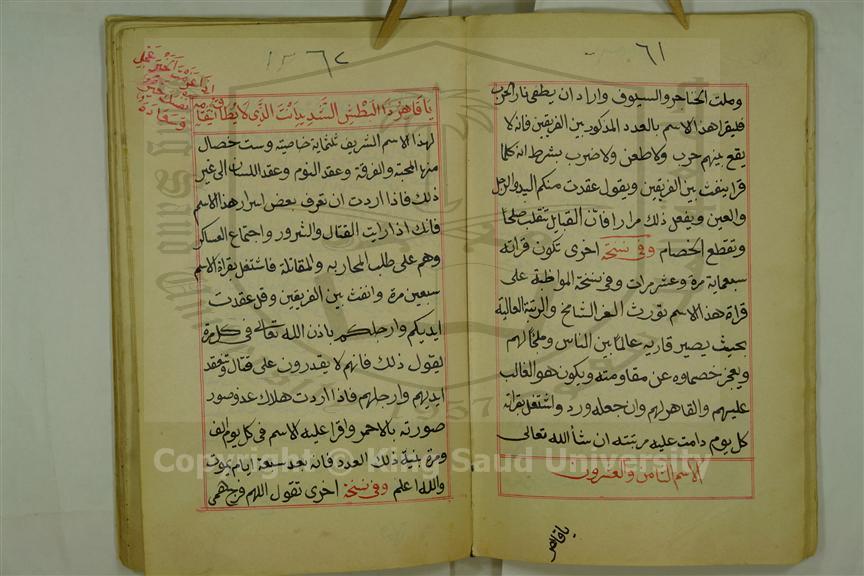 ٦١
وملت الخناجر والسيوف واراد ان يطفى نار الحرب
فليقرا هذا الاسم بالعدد المذكور بين الفريقين فانه لا
يقع بينهم حرب ولا طعن ولا ضرب بشرط انه كلما
قرا ينفث بين الفريقين ويقول عقدت منكم اليد والرجل
والعين ويفعل ذلك مرارا فان القبايل تنقلب صلحا
وتقطع الخصام وفى نسخة اخرى تكون قراته
سبعماية مرة وعشر مرات وفى نسخة المواظبة على
قراة هذا الاسم تورث العز الشامخ والرتبة العالية
بحيث يصير قاريه عالما بين الناس لهم
ويعجز خصماوه عن مقاومته ويكون هو الغالب
عليهم والقاهر لهم وان جعله ورد واشتغل بقراته
كل يوم دامت عليه مرتبته ان شأ الله تعالى
الاسم الثامن والعشرون
ياقاهر
٦٢
يا قاهر ذا البطش الشديد انت الذى لا يطاق انتقامه
لهذا الاسم الشريف ثلثماية خاصية وست خصال
منها المحبة والفرقة وعقد النوم وعقد اللسان الى غير
ذلك فاذا اردت ان تعرف بعض اسرار هذا الاسم
فانك اذا رايت القتال والشرور واجتماع العسكر
وهم على طلب المحاربه والمقاتلة فاشتغل بقراة الاسم
سبعين مرة وانفث بين الفريقين وقل عقدت
ايديكم وارجلكم باذن الله تعالى فى كل مرة
يقول ذلك فانهم لا يقدرون على قتال وتنعقد
ايديهم وارجلهم فاذا اردت هلاك عدو صور
صورته بالاحمر واقرا عليه الاسم فى كل يوم الف
ومرة بنية ذلك العدد فانه بعد سبعة ايام يموت
والله اعلم وفى نسخة اخرى تقول اللهم وجهى
Copyright © King Saud University
1957